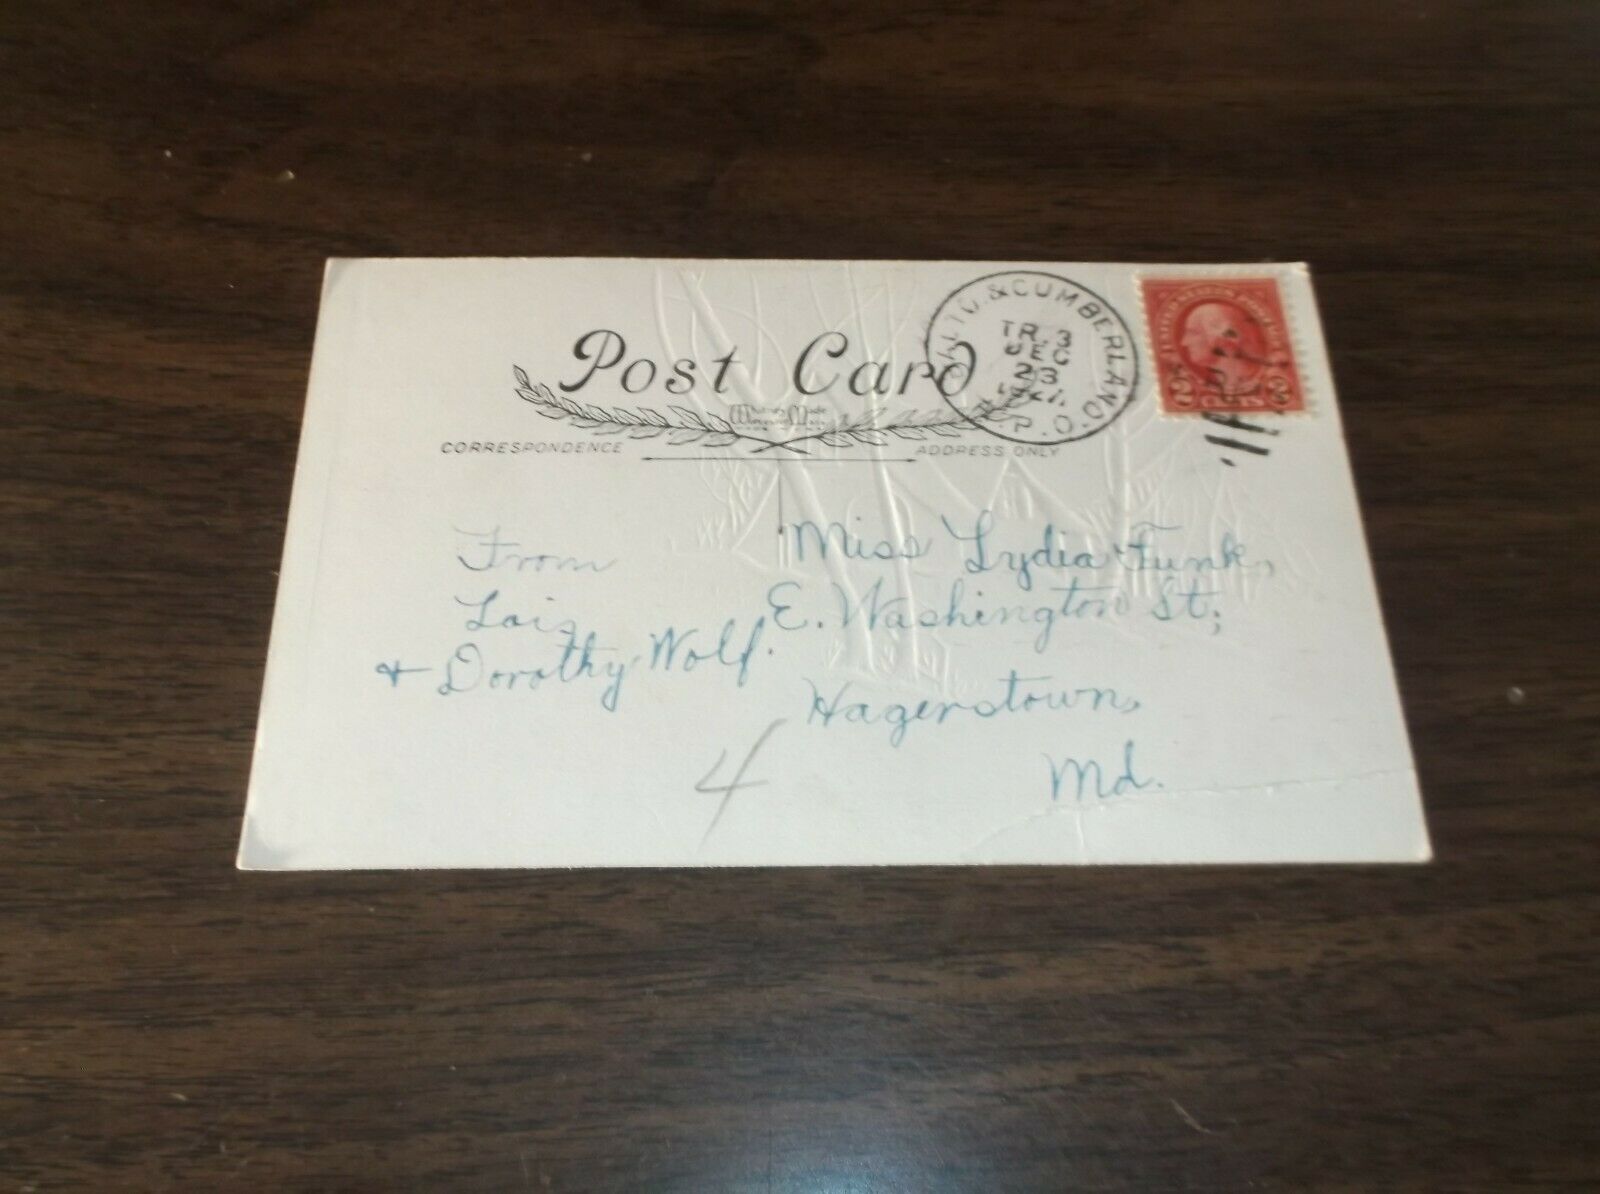 Post Card
CORRESPONDENCE
ADDRESS ONLY
& CUMBERLAND.
TR 3
DEC
23
R.P.O.
From
Lois
& Dorothy Wolf.
Miss Lydia Funk,
E. Washington St;
Hagerstown,
Md.
4